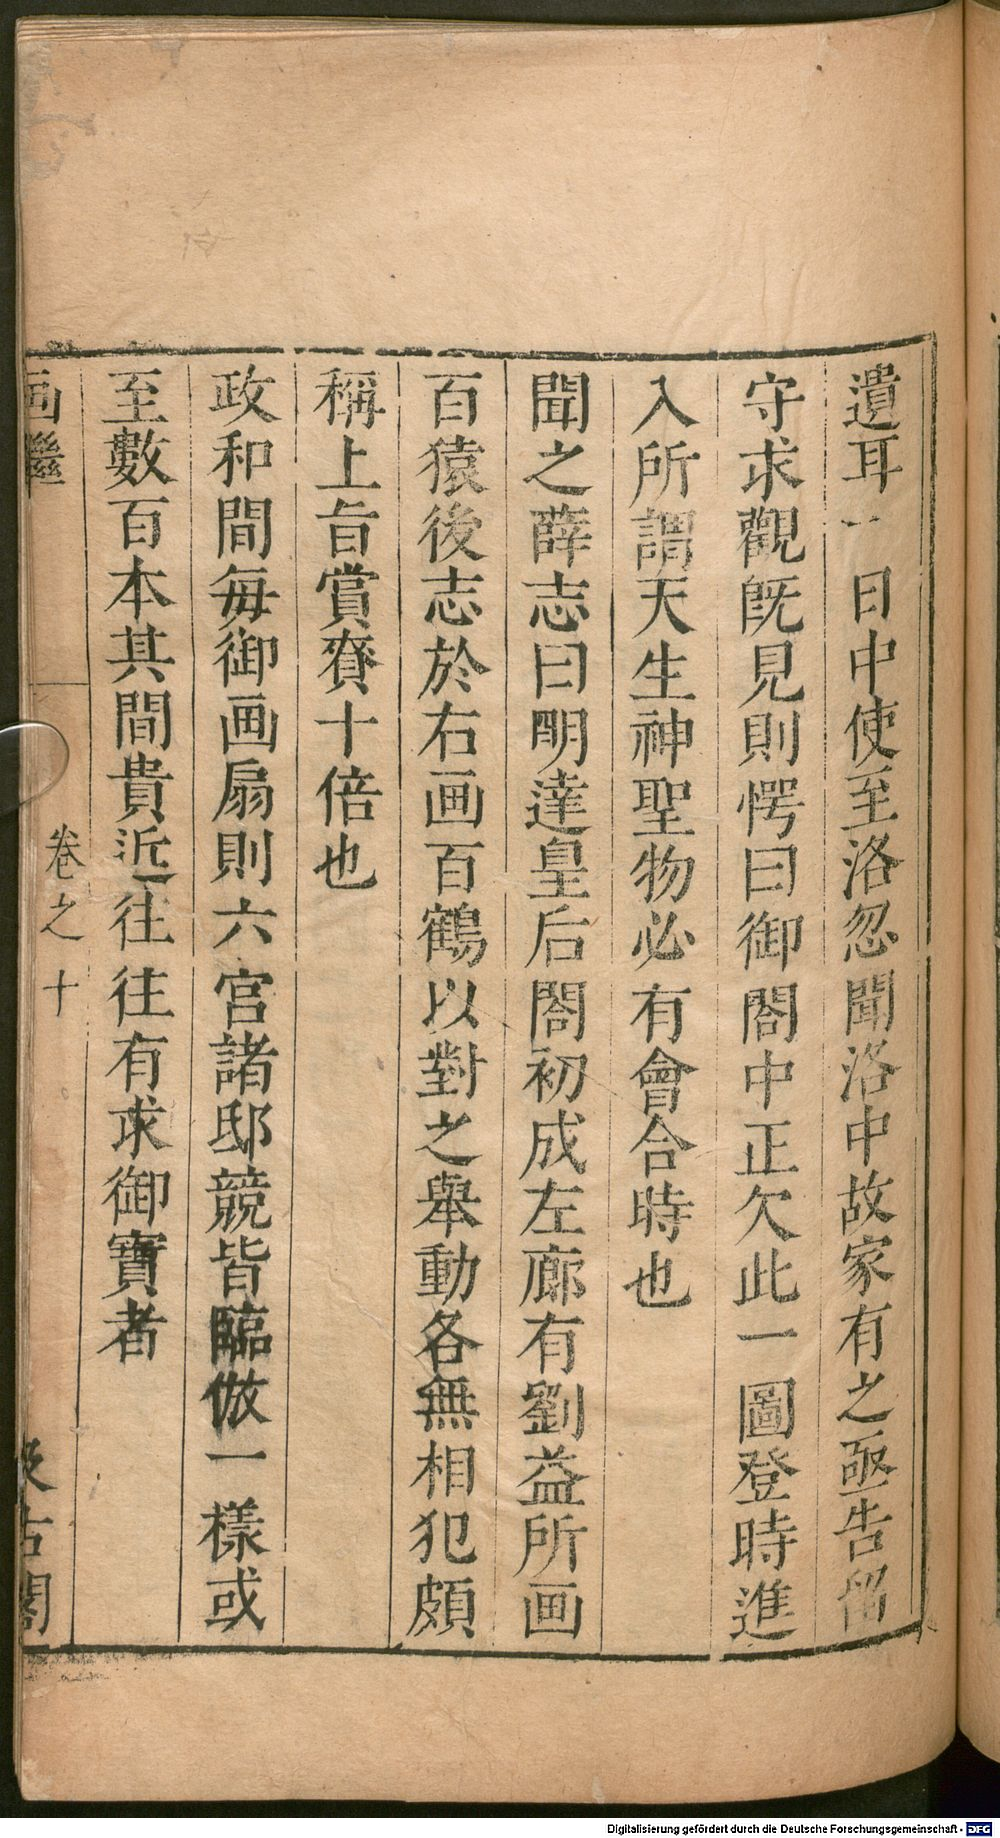 遺耳一日中使至洛忽聞洛中故家有之亟告留
守求觀旣見則愕曰御閤中正欠此一圖登時進
入所謂天生神聖物必有會合時也
聞之薛志曰明達皇后閤初成左廊有劉益所画
百猿後志於右画百鶴以對之舉動各無相犯頗
稱上旨賞賚十倍也
政和間每御画扇則六宮諸邸競皆臨倣一樣或
至數百本其間貴近往往有求御寶者
画繼
卷之十
汲古閣
Digitalisierung gefördert durch die Deutsche Forschungsgemeinschaft - DFG